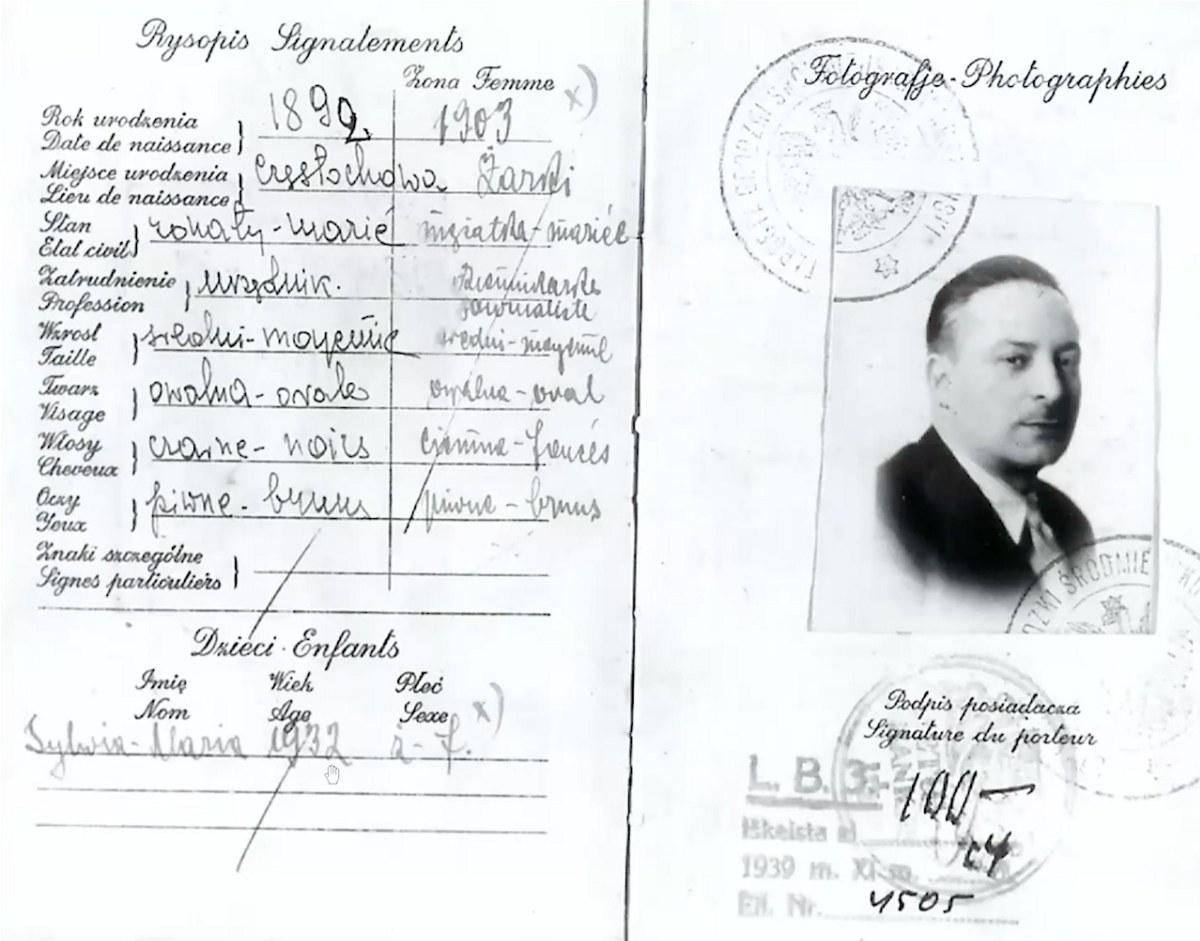 Rysopis Signalements
Żona Femme x)
Rok urodzenia
Date de naissance 1899 1903
Miejsce urodzenia
Lieu de naissance Częstochowa Żarki
Stan
Etat civil żonaty-marié mężatka-mariée
Zatrudnienie
Profession urzędnik. dziennikarka
journaliste
Wzrost
Taille średni-moyenne średni-moyenne
Twarz
Visage owalna-ovale owalna-oval
Włosy
Cheveux czarne-noirs ciemne-foncés
Oczy
Yeux piwne-bruns piwne-bruns
Znaki szczególne
Signes particuliers
Dzieci-Enfants
Imię Wiek Płeć
Nom Age Sexe x)
Sylwia-Maria 1932 ż-f.
Fotografje-Photographies
ŚRODMIE
Podpis posiadacza
Signature du porteur
L. B. 3.- 100-
Iškeista
1939 m. XI m. 24
Eil. Nr. 4505